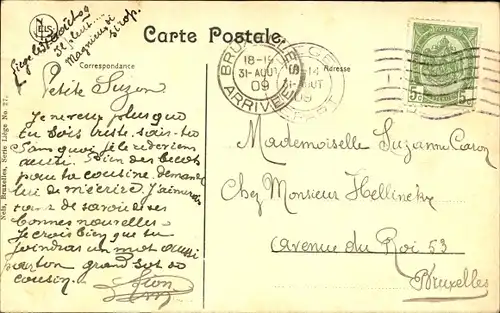 Liège le 31 août 09
Il pleut....
Magnienside
Sirop.
NELS
Carte Postale
Correspondance
Adresse
BRUXELLES
18-19
31-AOUT
09
ARRIVEE
14
31-AOUT
09
DEPART
5c 5c
Petite Suzon
Je ne veux plus que
tu sois triste, sais-tu
sans quoi je le redeviens
aussi. Bien des becots
pour ta cousine, demande
lui de m'écrire. J'aimerais
de savoir de ses
bonnes nouvelles.
Je crois bien que tu
joindras un mot aussi
pour ton grand sot de
cousin.
Léon
Mademoiselle Suzanne Caron
Chez Monsieur Hellinckx
avenue du Roi 53
Bruxelles
Nels, Bruxelles, Serie Liège No. 27.